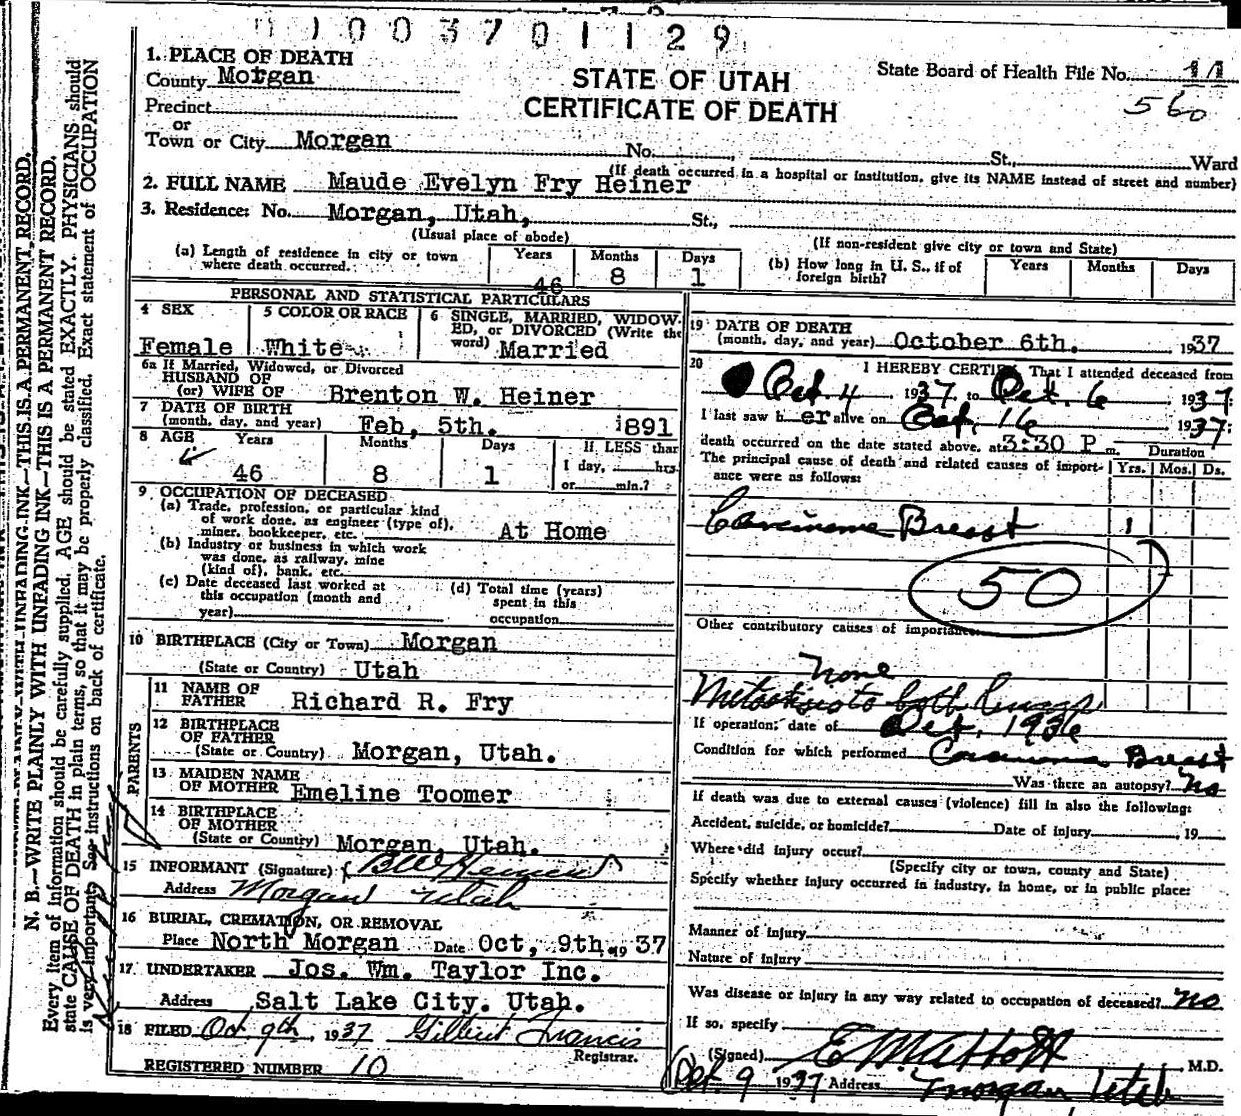 0 1 0 0 3 7 0 1 1 2 9
1. PLACE OF DEATH
County Morgan
STATE OF UTAH
CERTIFICATE OF DEATH
State Board of Health File No. 11
560
Precinct
or
Town or City Morgan No. , St., Ward
(If death occurred in a hospital or institution, give its NAME instead of street and number)
2. FULL NAME Maude Evelyn Fry Heiner
3. Residence: No. Morgan, Utah, St.,
(Usual place of abode) (If non-resident give city or town and State)
(a) Length of residence in city or town where death occurred. Years 46 Months 8 Days 1
(b) How long in U. S., if of foreign birth? Years Months Days
PERSONAL AND STATISTICAL PARTICULARS
4 SEX Female
5 COLOR OR RACE White
6 SINGLE, MARRIED, WIDOWED, or DIVORCED (Write the word) Married
6a If Married, Widowed, or Divorced
HUSBAND OF
(or) WIFE OF Brenton W. Heiner
7 DATE OF BIRTH
(month, day, and year) Feb, 5th. 1891
8 AGE Years Months Days If LESS than
46 8 1 1 day, hrs.
or min.?
9 OCCUPATION OF DECEASED
(a) Trade, profession, or particular kind
of work done, as engineer (type of),
miner, bookkeeper, etc. At Home
(b) Industry or business in which work
was done, as railway, mine
(kind of), bank, etc.
(c) Date deceased last worked at
this occupation (month and
year)
(d) Total time (years)
spent in this
occupation
10 BIRTHPLACE (City or Town) Morgan
(State or Country) Utah
PARENTS
11 NAME OF
FATHER Richard R. Fry
12 BIRTHPLACE
OF FATHER
(State or Country) Morgan, Utah.
13 MAIDEN NAME
OF MOTHER Emeline Toomer
14 BIRTHPLACE
OF MOTHER
(State or Country) Morgan, Utah.
15 INFORMANT (Signature) B W Heiner
Address Morgan Utah
16 BURIAL, CREMATION, OR REMOVAL
Place North Morgan Date Oct, 9th, 19 37
17. UNDERTAKER Jos. Wm. Taylor Inc.
Address Salt Lake City. Utah.
18 FILED Oct 9th, 1937 Gilbert Francis
Registrar.
REGISTERED NUMBER 10
19 DATE OF DEATH
(month, day, and year) October 6th. 1937
20 I HEREBY CERTIFY That I attended deceased from
Oct. 4 1937 to Oct. 6 1937
I last saw h er alive on Oct. 16 1937
death occurred on the date stated above, at 3:30 P m. Duration
The principal cause of death and related causes of importance were as follows: Yrs. Mos. Ds.
Carcinoma Breast 1
50
Other contributory causes of importance:
none
Metastisis to both lungs
If operation, date of Oct. 1936
Condition for which performed Carcinoma Breast
Was there an autopsy? no
If death was due to external causes (violence) fill in also the following:
Accident, suicide, or homicide? Date of injury , 19
Where did injury occur?
(Specify city or town, county and State)
Specify whether injury occurred in industry, in home, or in public place:
Manner of injury
Nature of injury
Was disease or injury in any way related to occupation of deceased? no
If so, specify
(Signed) E M Abbott M.D.
Oct 9 1937 Address Morgan, Utah
N. B.—WRITE PLAINLY WITH UNFADING INK—THIS IS A PERMANENT RECORD.
Every item of information should be carefully supplied. AGE should be stated EXACTLY. PHYSICIANS should
state CAUSE OF DEATH in plain terms, so that it may be properly classified. Exact statement of OCCUPATION
is very important. See instructions on back of certificate.